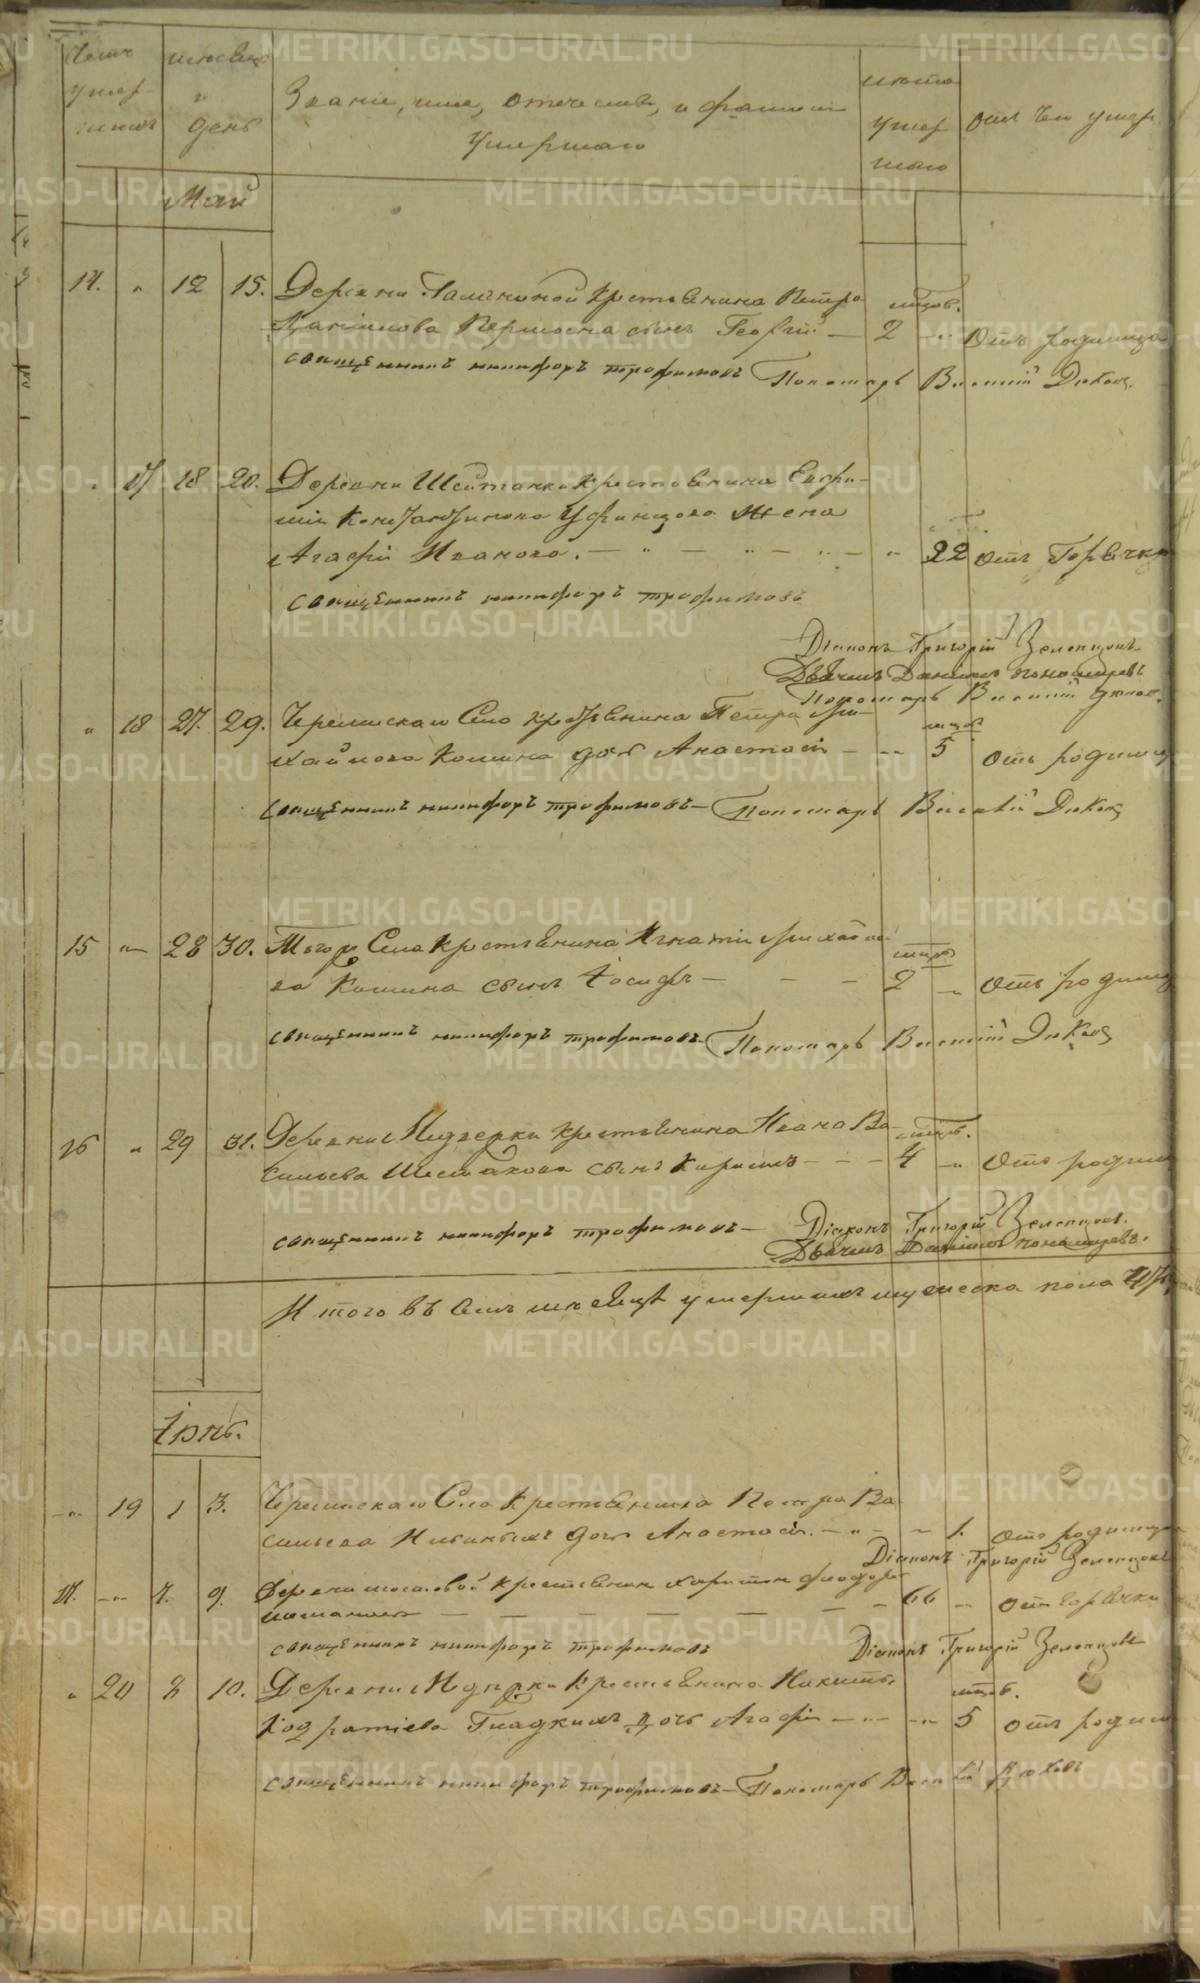 Число умер- шихъ
мѣсяцъ и день
Званіе, имя, отечество, и фамилія
Умершаго
лѣта умершаго
отъ чего умеръ
Май
14. " 12 15. Деревни крестьянина Петра мѣсяц.
сынъ Георгій — 2 - Отъ родимца
священникъ никифоръ трофимовъ Пономарь Василій Дюковъ
" 17 18 20. Деревни Шайтанки крестьянина Евфи-
мія Константинова Уфинцова жена
Агафія Иванова. — " — " — " — " 22 отъ Горячки
священникъ никифоръ трофимовъ
Діаконъ Григорій Зеленцовъ
Дьячекъ Даніилъ пономаревъ
Пономарь Василій Дюков.
" 18 27. 29. Черемискаго Села крестьянина Петра Ми- мѣсяц
хайлова Кошина дочь Анастасія — -- 5 отъ родимц
священникъ никифоръ трофимовъ — Пономарь Василій Дюковъ
15 " 28 30. Тогоже Села крестьянина Игнатія Михайло- мѣсяц
ва Кошина сынъ Іосифъ — — — 2 - отъ родимц
священникъ никифоръ трофимовъ Пономарь Василій Дюковъ
16 " 29 31. Деревни Медведки крестьянина Ивана Ва- мѣсяц.
сильева Шестакова сынъ Кирилъ - - - 4 - отъ родим
священникъ никифоръ трофимовъ — Діаконъ Григорій Зеленцовъ.
Дьячекъ Даніилъ пономаревъ.
И того въ семъ мѣсяцѣ умершихъ мужеска пола
Іюнь.
" 19 1 3. Черемискаго Села Крестьянина Петра Ва-
сильева дочь Анастасія. — " - - 1. отъ родимца
Діаконъ Григорій Зеленцовъ
17. " 7. 9. Деревни крестьянин Харитон Феодоров
— — — — — — 66 - отъ горячки
священникъ никифоръ трофимовъ Діаконъ Григорій Зеленцовъ
" 20 8 10. Деревни Медведки Крестьянина Никиты мѣсяц.
Кодратіева Гладкихъ дочь Агафія — -- 5 отъ родим
священникъ никифоръ трофимовъ — Пономарь Василій Дюковъ
METRIKI.GASO-URAL.RU